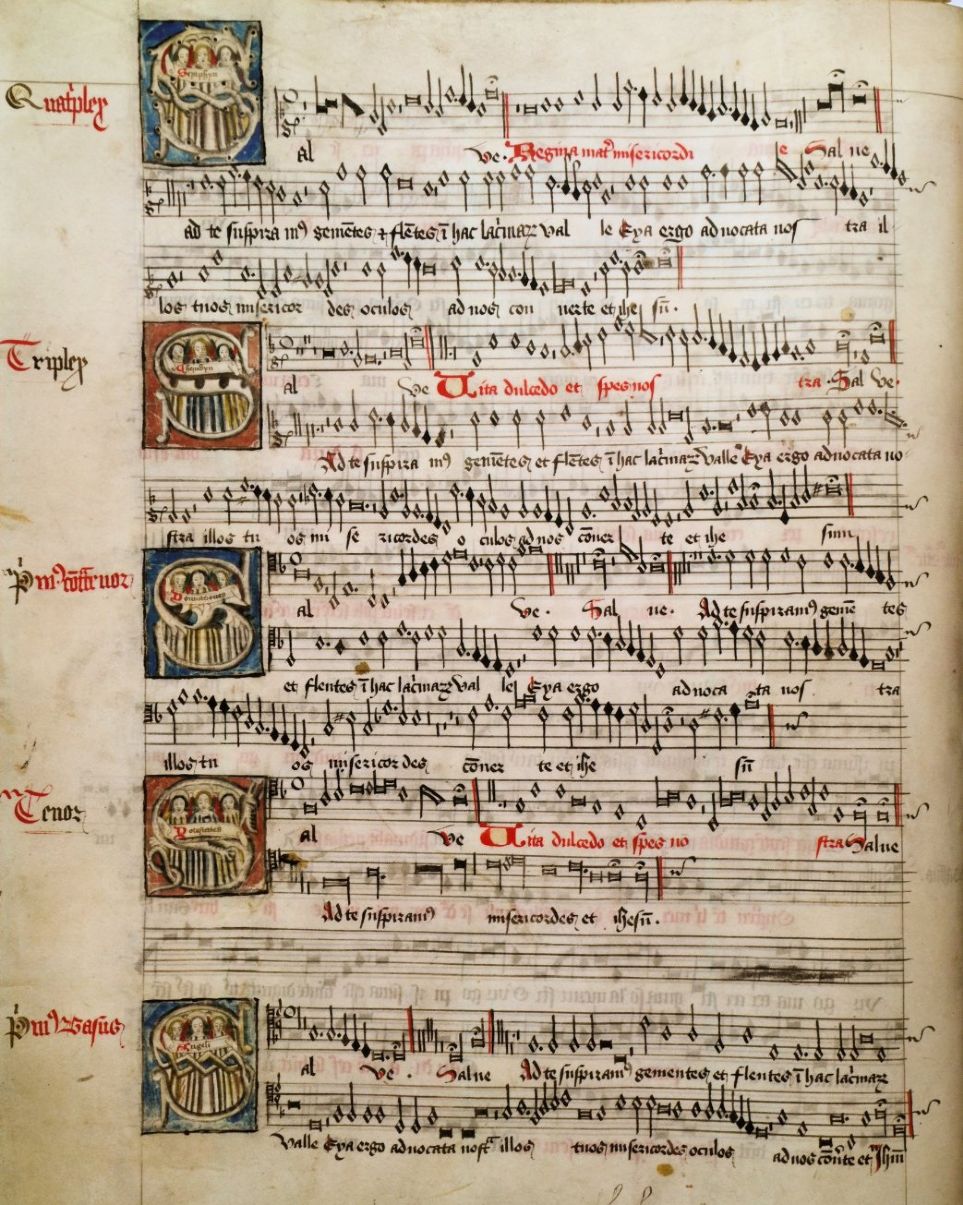 Quatplex
al ve . Regina mat misericordi e Salue
ad te suspiram gemētes & flētes ī hac lacimaꝝ val le Eya ergo aduocata nos tra il
los tuos misericor des oculos ad nos con uerte et ihe sū .
Triplex
al ve Uita dulcedo et spes nos tra . Salve .
Ad te suspira mꝰ gemētes et flētes ī hac lacimaꝝ valle Eya ergo aduocata no
stra illos tu os mi se ricordes o culos ad nos cōuer te et ihe sum
al ve . Salue . Ad te suspiramꝰ geme tes
et flentes ī hac lacimaꝝ val le Eya ergo aduoca ta nos tra
illos tu os misericordes cōuer te et ihe sū
Tenor
al ve Uita dulcedo et spes no stra Salue
Ad te suspiramꝰ misericordes et ihesū .
Pmꝰ Basus
Angeli
al ve . Salue Ad te suspiramꝰ gementes et flentes ī hac lacimaꝝ
valle Eya ergo aduocata nost illos tuos misericordes oculos ad nos cōute et Jhm